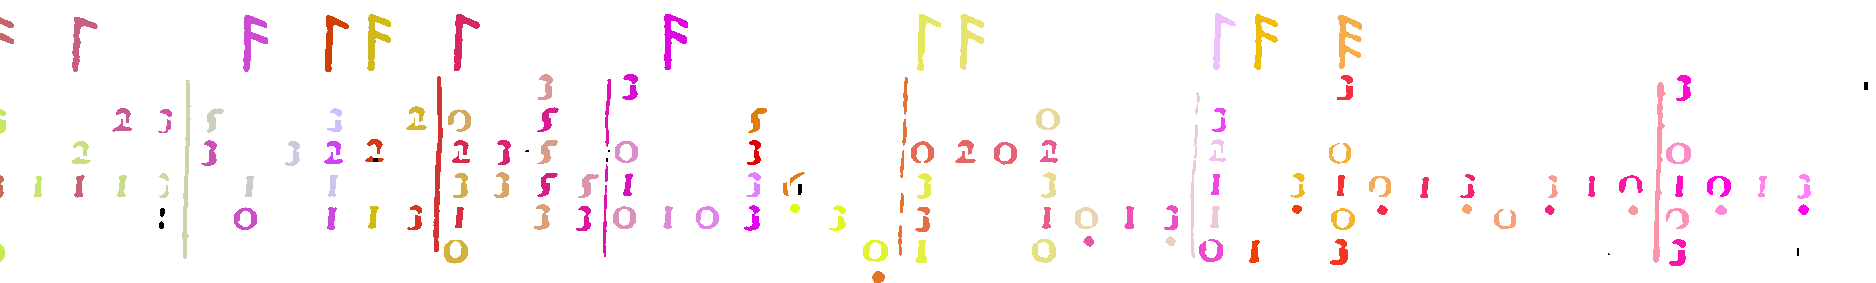 3 3 3 3
2 3 5 3 2 0 5 5 0 3
2 3 3 2 2 2 3 5 0 3 0 2 0 2 2 0 0
1 1 1 3 1 1 3 3 5 5 1 3 3 3 1 3 1 0 1 3 3 1 0 1 0 1 3
0 1 1 3 1 3 3 0 1 0 3 3 3 1 0 1 3 1 0 0 0
0 0 1 0 0 1 3 3